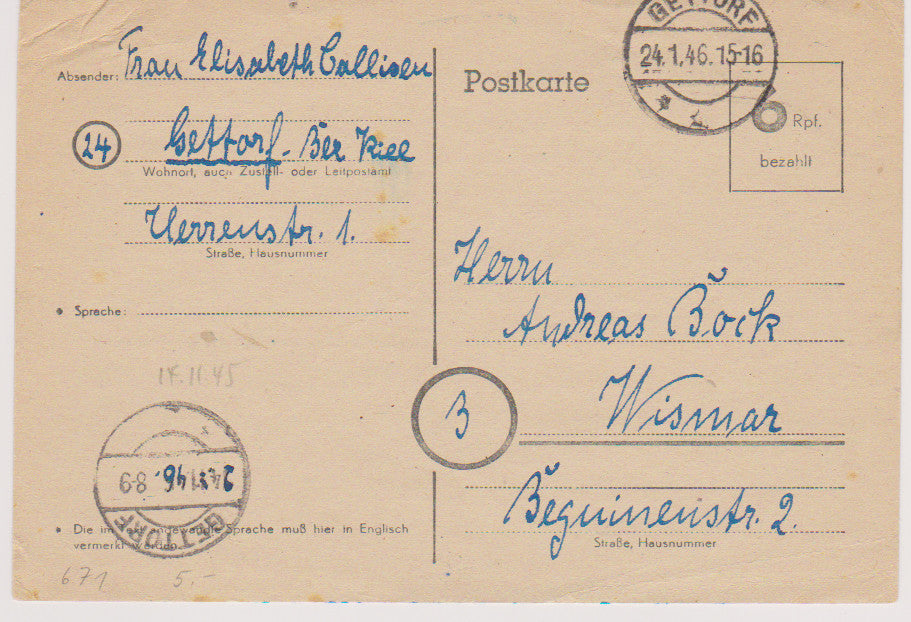 GETTORF
24.1.46.15-16
Absender: Frau Elisabeth Callisen
Postkarte
6 Rpf.
bezahlt
24
Gettorf - Bez Kiel
Wohnort, auch Zustell- oder Leitpostamt
Herrenstr. 1.
Straße, Hausnummer
Sprache:
Herrn
Andreas Bock
3
Wismar
Beguinenstr. 2.
Straße, Hausnummer
14.11.45
46. 8-9
GETTORF
Die im angewandte Sprache muß hier in Englisch
vermerkt werden.
671
5.-